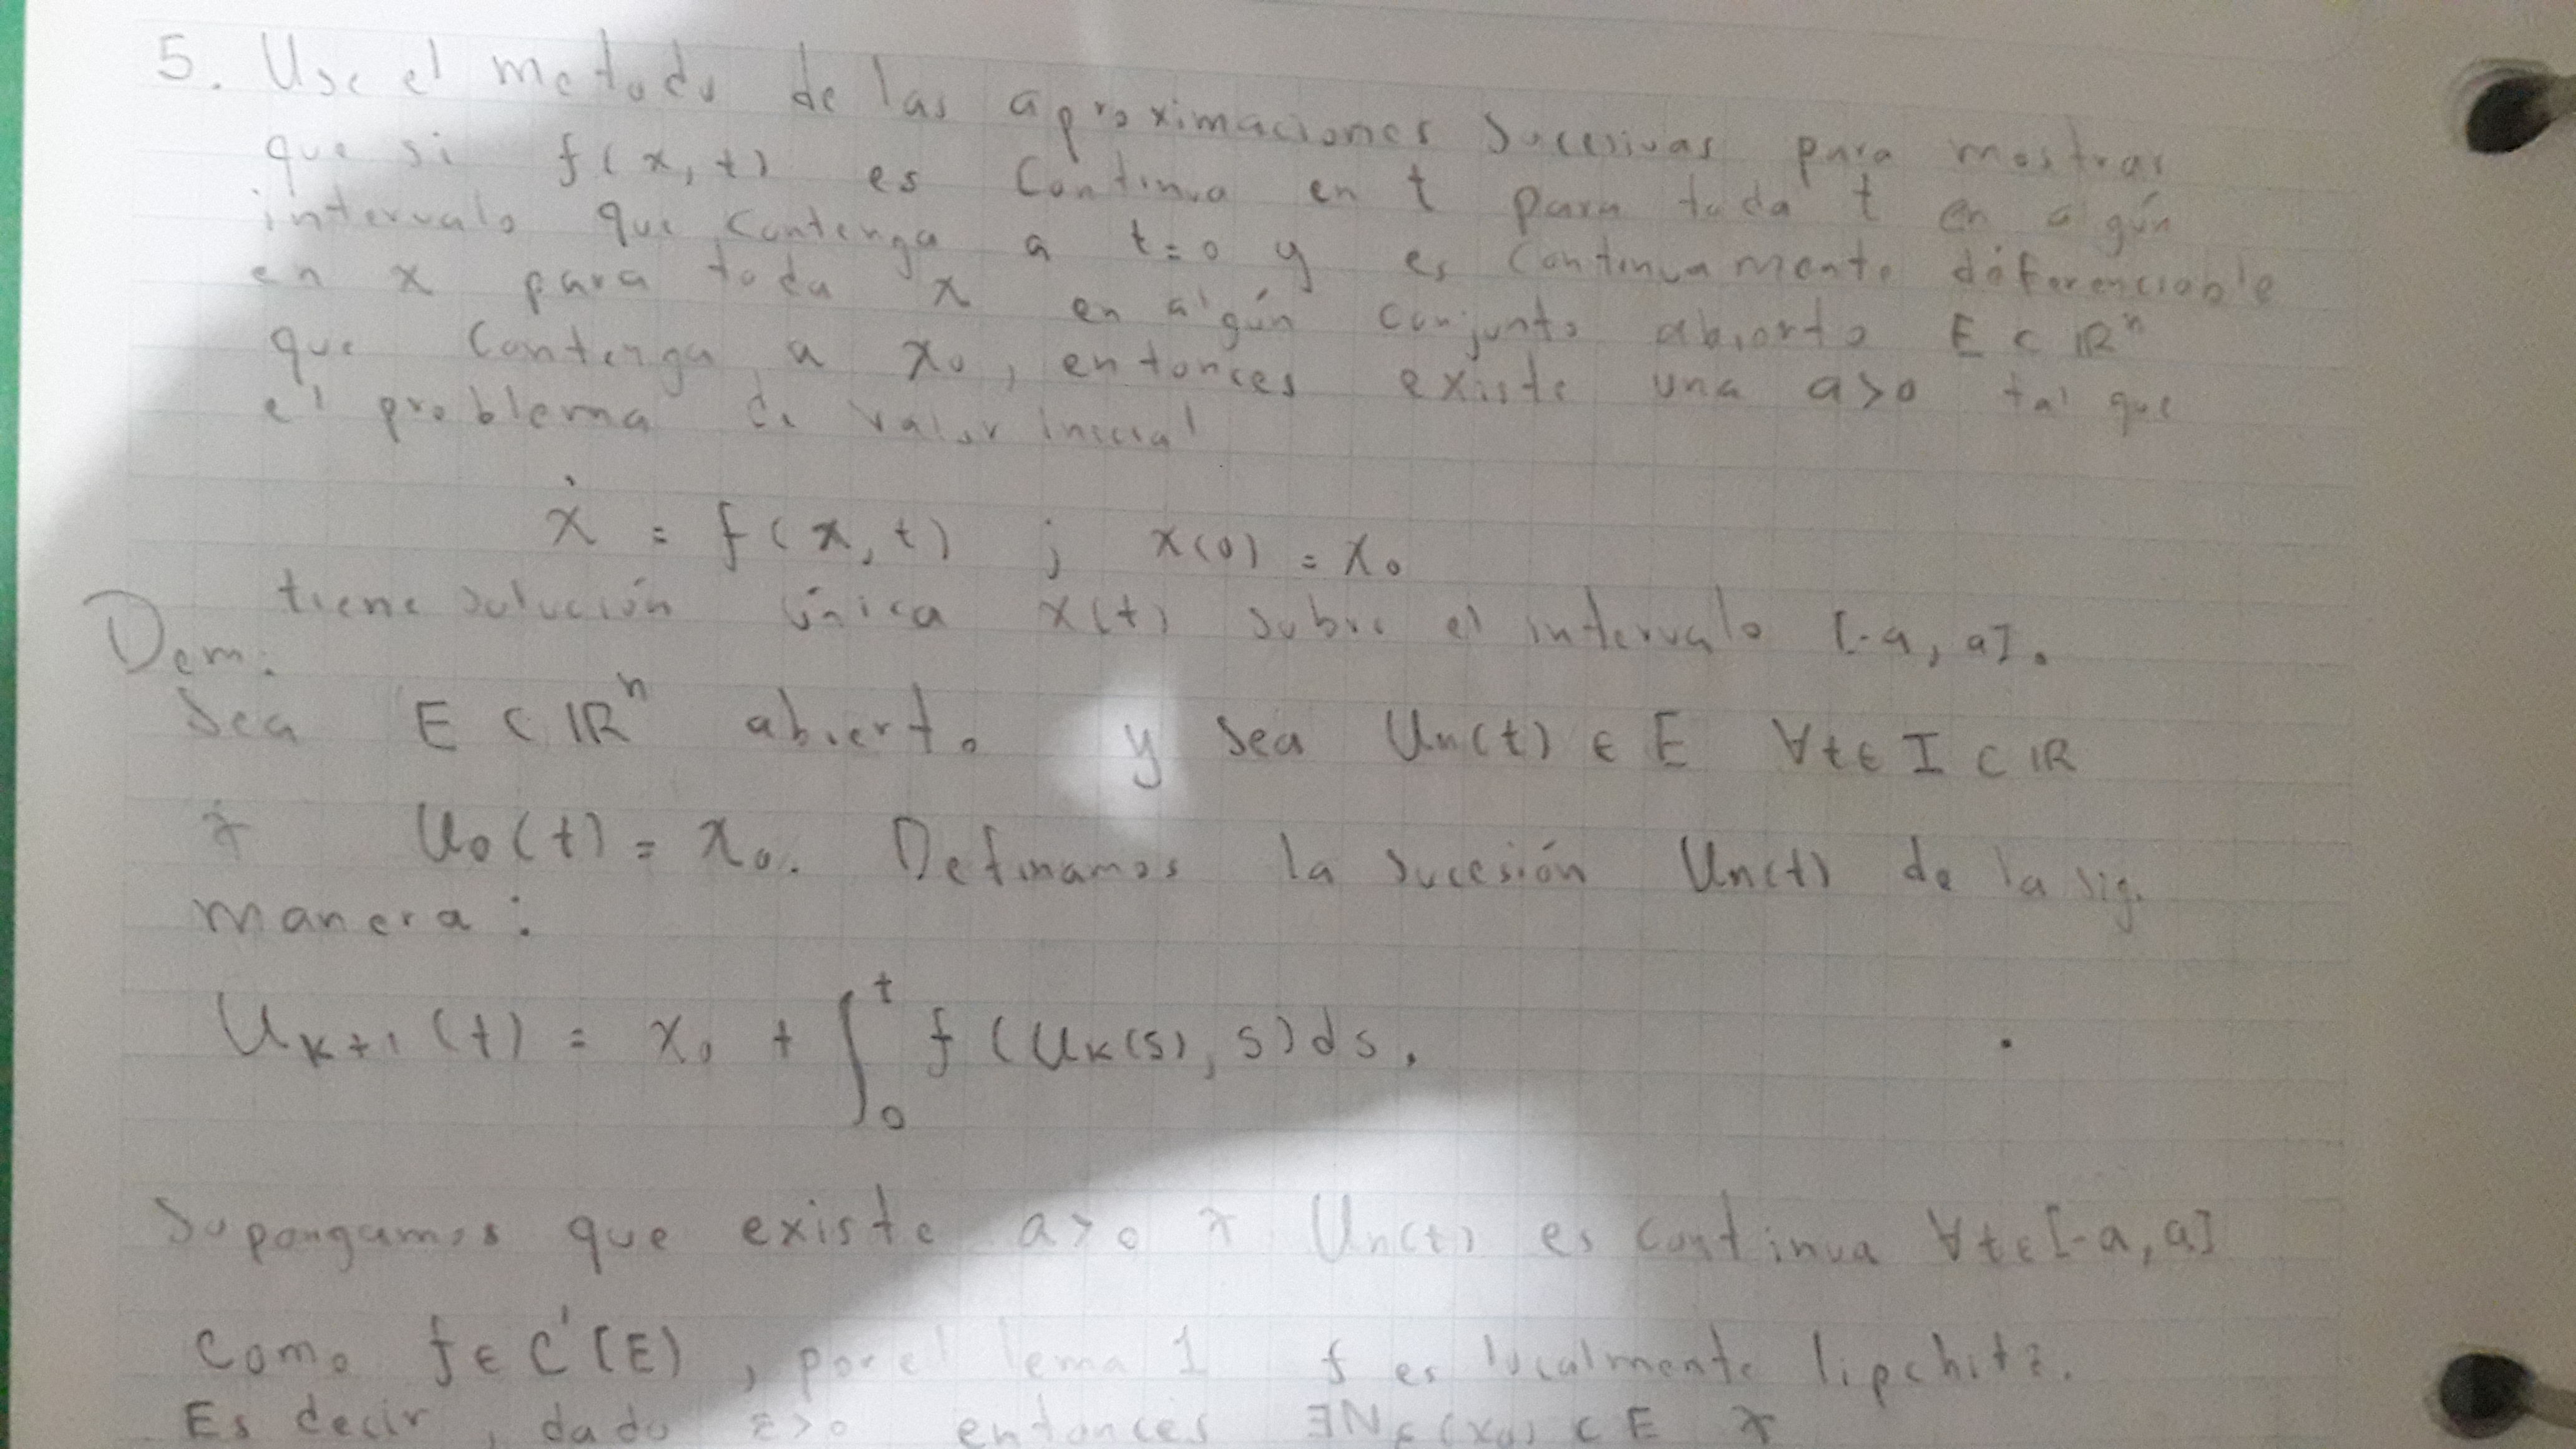 5. Use el metodo de las aproximaciones sucesivas para mostrar
que si f(x,t) es continua en t para toda t en algún
intervalo que contenga a t=0 y es continuamente diferenciable
en x para toda x en algún conjunto abierto E ⊂ ℝⁿ
que contenga a x₀, entonces existe una a>0 tal que
el problema de valor inicial
ẋ = f(x,t) ; x(0) = x₀
tiene solución única x(t) sobre el intervalo [-a,a].
Dem:
Sea E ⊂ ℝⁿ abierto y sea Uₙ(t) ∈ E ∀t ∈ I ⊂ ℝ
U₀(t) = x₀. Definamos la sucesión Uₙ(t) de la sig.
manera:
Uₖ₊₁(t) = x₀ + ∫₀ᵗ f(Uₖ(s), s)ds.
Supongamos que existe a>0 Uₙ(t) es continua ∀t∈[-a,a]
Como f ∈ C¹(E), por el lema 1 f es localmente lipchitz.
Es decir, dado ε>0 entonces ∃Nε(x₀) ⊂ E